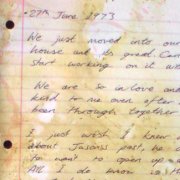 27th June 1973
We just moved into our
house and its great. Can
start working on it wi
We are so in love and
kind to me even after
been through together
I just wish I knew
about Jason's past, he d
to want to open up a
All I do know is th